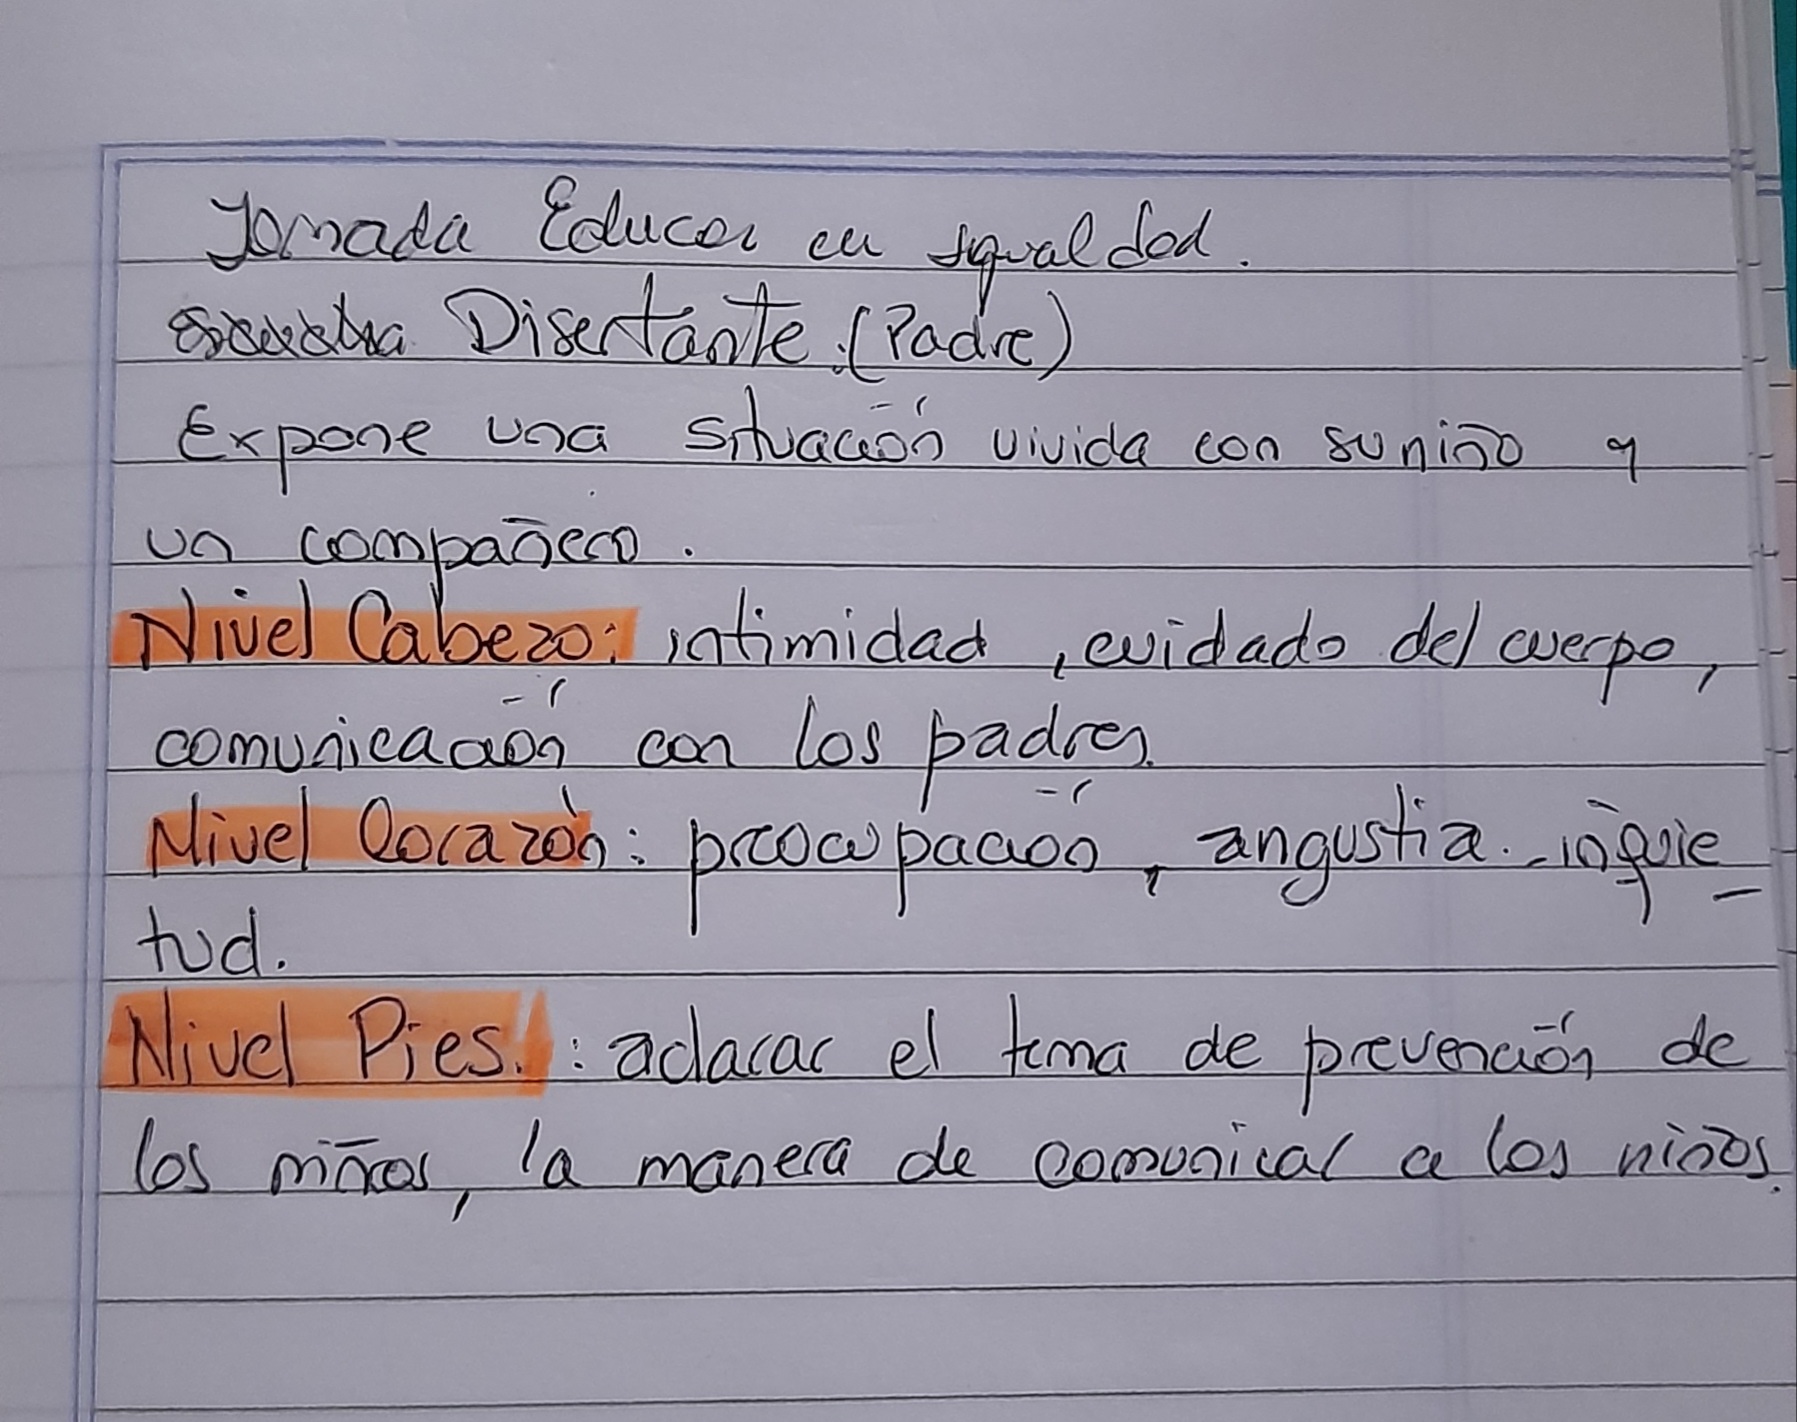 Jornada Educar en igualdad.
Disertante:(Padre)
Expone una situación vivida con su niño y
un compañero.
Nivel Cabeza: intimidad, cuidado del cuerpo,
comunicación con los padres.
Nivel Corazón: preocupación, angustia. inquie_
tud.
Nivel Pies.: aclarar el tema de prevención de
los niños, la manera de comunicar a los niños.